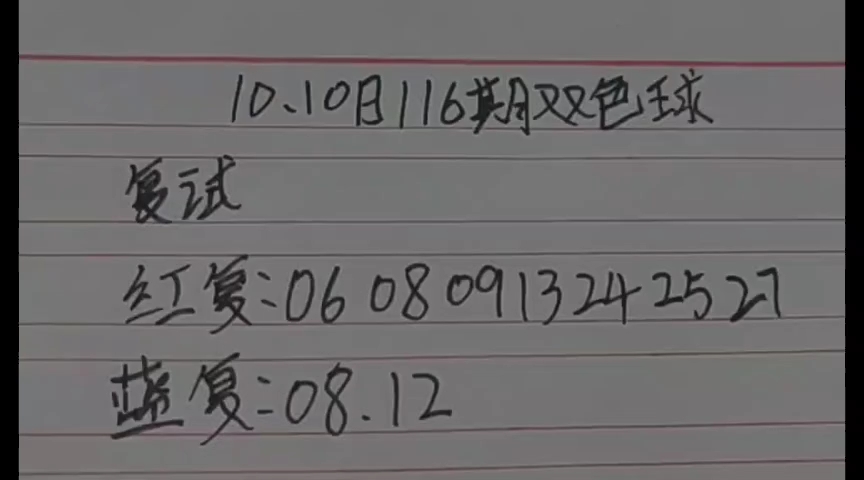 10.10日116期双色球
复试
红复:06 08 09 13 24 25 27
蓝复:08.12